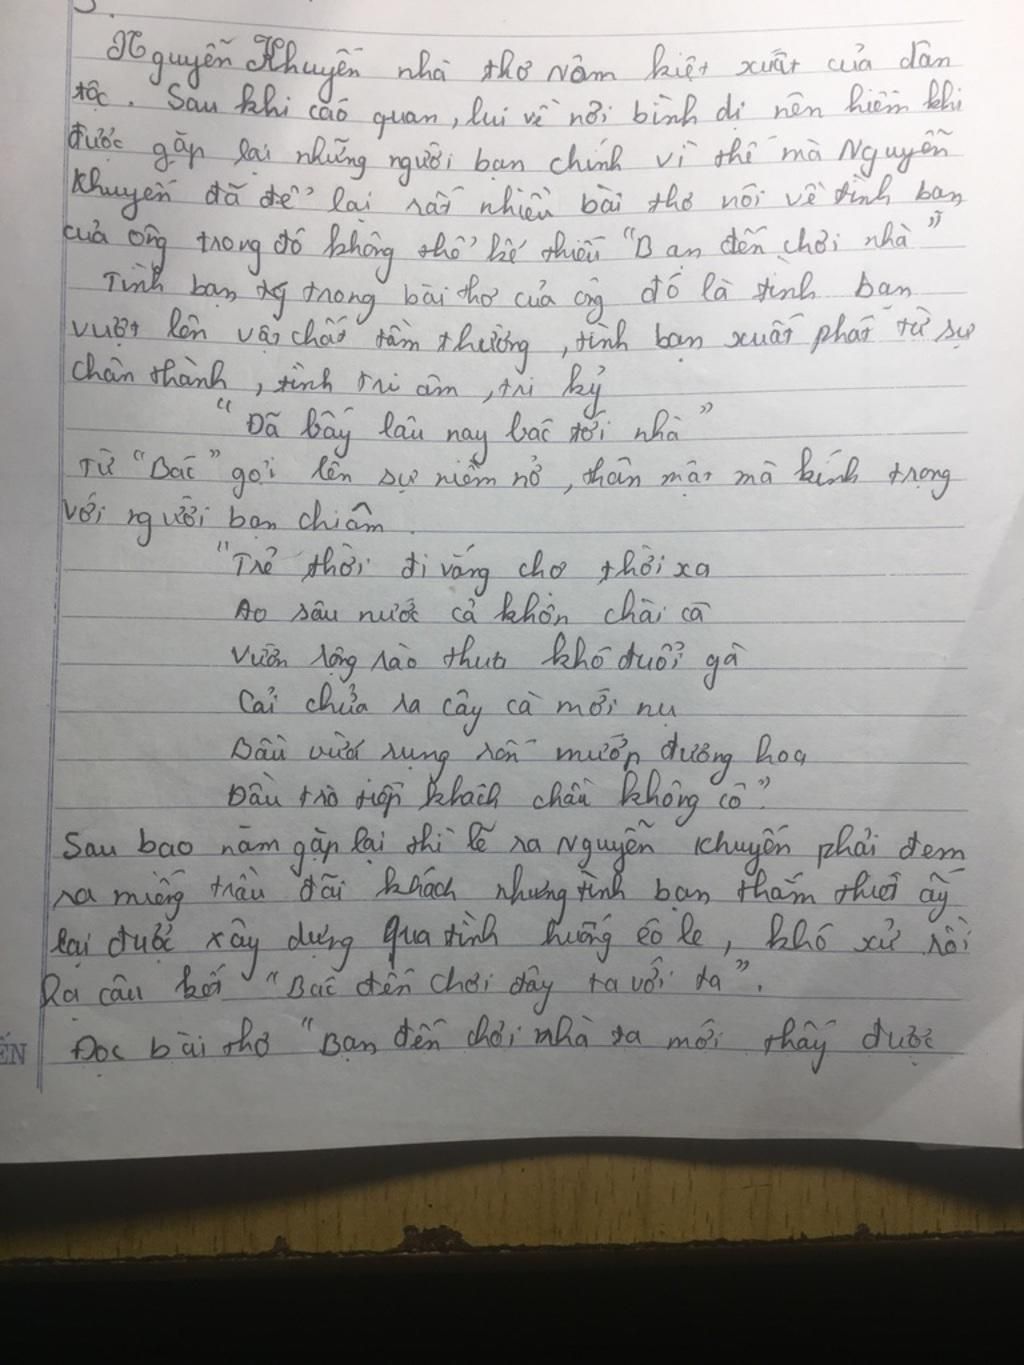 Nguyễn Khuyến nhà thơ Nôm kiệt xuất của dân
tộc. Sau khi cáo quan, lui về nơi bình dị nên hiếm khi
được gặp lại những người bạn chính vì thế mà Nguyễn
Khuyến đã để lại rất nhiều bài thơ nói về tình bạn
của ông trong đó không thể kể thiếu "Bạn đến chơi nhà"
Tình bạn trong bài thơ của ông đó là tình bạn
vượt lên vật chất tầm thường, tình bạn xuất phát từ sự
chân thành, tình tri âm, tri kỷ
"Đã bấy lâu nay bác tới nhà"
Từ "Bác" gọi lên sự niềm nở, thân mật mà kính trọng
với người bạn chiâm.
"Trẻ thời đi vắng chợ thời xa
Ao sâu nước cả khôn chài cá
Vườn rộng rào thưa khó đuổi gà
Cải chửa ra cây cà mới nụ
Bầu vừa rụng rốn mướp đương hoa
Đầu trò tiếp khách chầu không có"
Sau bao năm gặp lại thì lẽ ra Nguyễn Khuyến phải đem
ra miếng trầu đãi khách nhưng tình bạn thắm thiết ấy
lại được xây dựng qua tình huống éo le, khó xử rồi
Ra câu kết "Bác đến chơi đây ta với ta".
Đọc bài thơ "Bạn đến chơi nhà ta mới thấy được